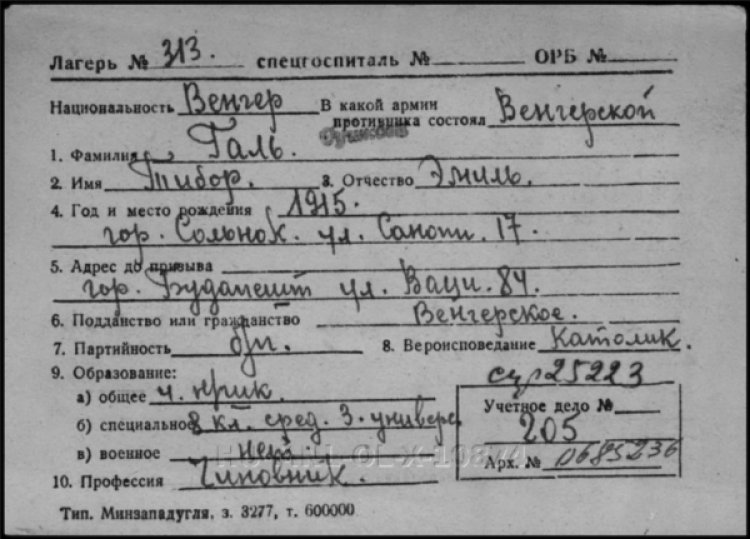 Лагерь № 313. спецгоспиталь № ОРБ №
Национальность Венгер В какой армии
противника состоял Венгерской
1. Фамилия Галь.
2. Имя Тибор. 3. Отчество Эмиль.
4. Год и место рождения 1915.
гор. Сольнок. ул. 17.
5. Адрес до призыва
гор. Будапешт ул. Ваци. 84.
6. Подданство или гражданство Венгерское.
7. Партийность б/п. 8. Вероисповедание Католик.
9. Образование:
а) общее
б) специальное 8 кл. сред. 3. универс
в) военное нет
10. Профессия Чиновник.
25223
Учетное дело №
205
Арх. № 0685236
HU-HNL-OL-X-10874
Тип. Минзападугля, з. 3277, т. 600000